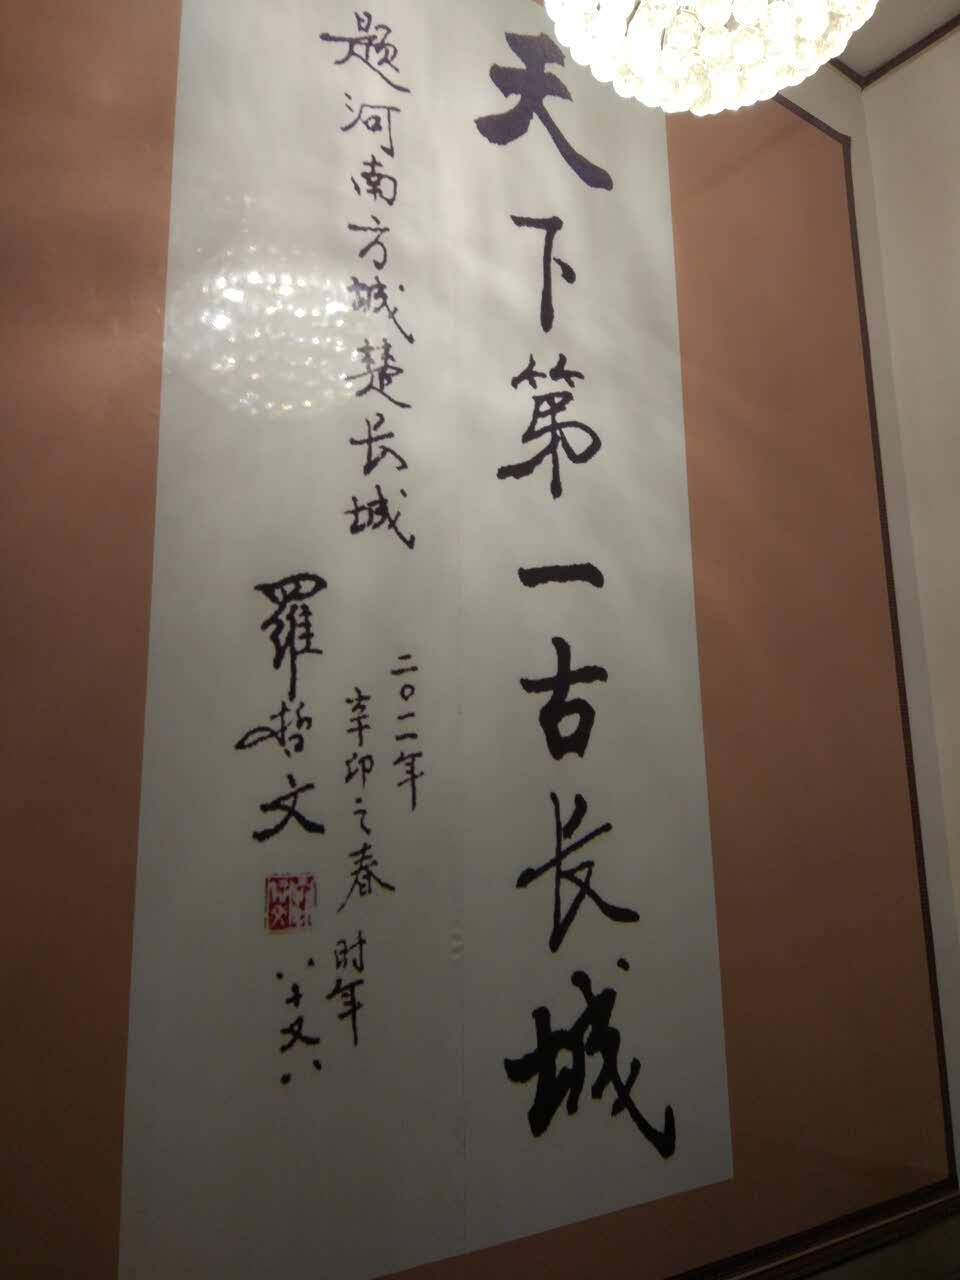 天下第一古长城
题河南方城楚长城
二〇一一年
辛卯之春 时年
羅哲文
八十又八